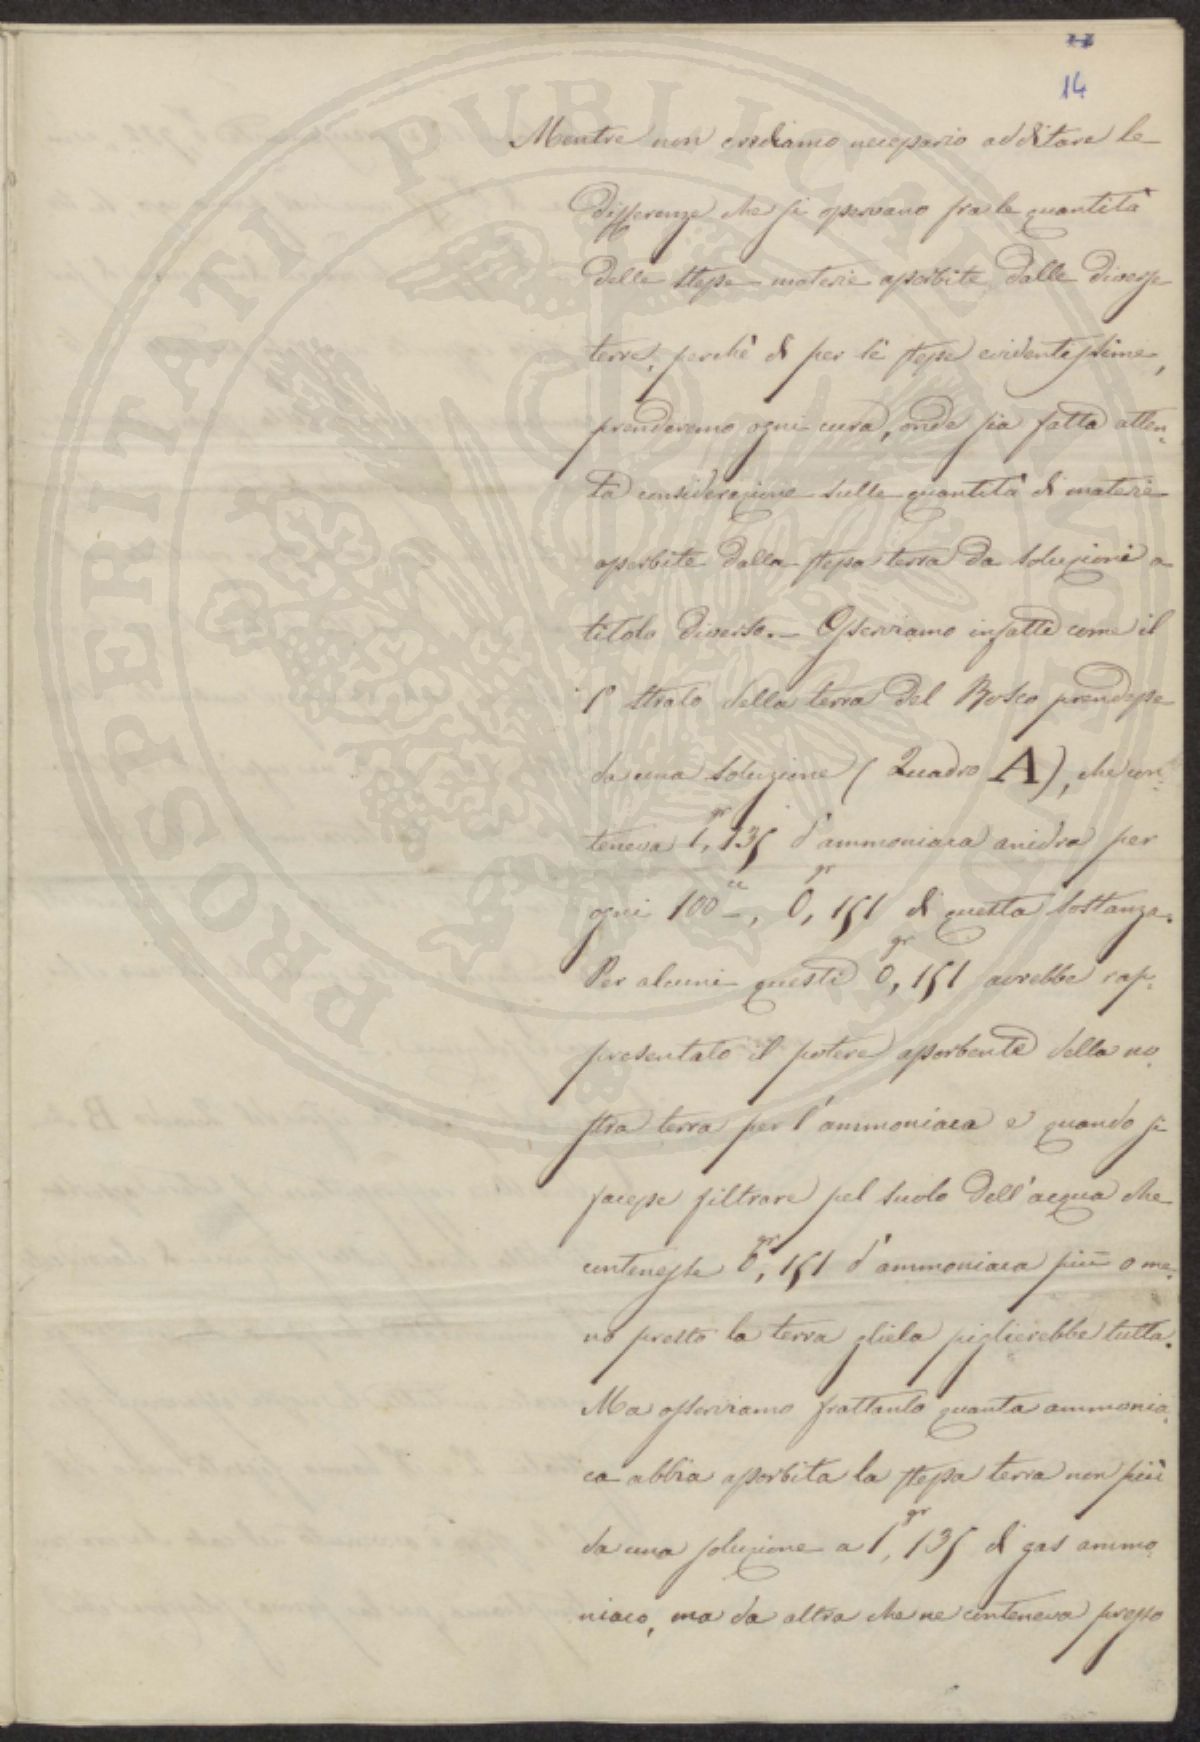 14
Mentre non crediamo necessario additare le
differenze che si osservano fra le quantità
delle stesse materie assorbite dalle diverse
terre, perchè di per sè stesse evidentissime,
prenderemo ogni cura, onde sia fatta atten-
ta considerazione sulle quantità di materie
assorbite dalla stessa terra da soluzioni a
titolo diverso. – Osserviamo infatti come il
1° strato della terra del Bosco prendesse
da una soluzione (Quadro A), che con-
teneva 1,gr135 d'ammoniaca anidra per
ogni 100cc, 0,gr151 di questa sostanza.
Per alcuni questi 0,gr151 avrebbe rap-
presentato il potere assorbente della no-
stra terra per l'ammoniaca e quando si
facesse filtrare pel suolo dell'acqua che
contenesse 0,gr151 d'ammoniaca più o me-
no presto la terra gliela piglierebbe tutta.
Ma osserviamo frattanto quanta ammonia-
ca abbia assorbita la stessa terra non più
da una soluzione a 1,gr135 di gas ammo-
niaco, ma da altra che ne conteneva presso
PROSPERITATI PUBLICAE